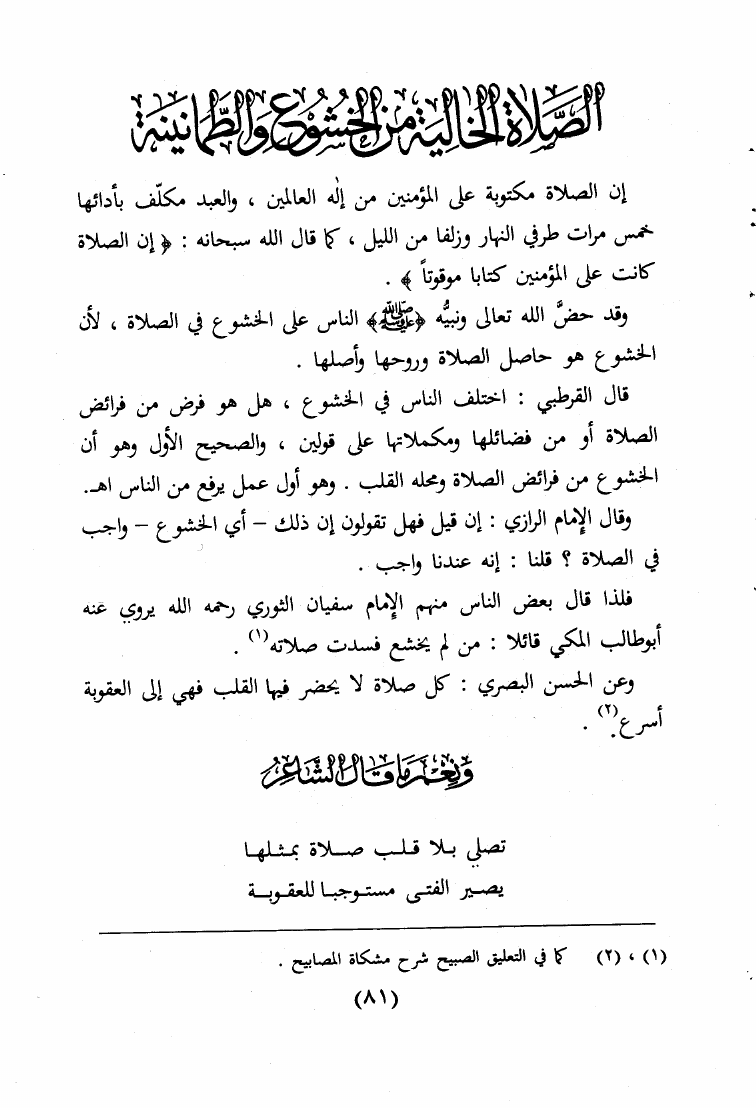 الصَّلاة الخالية من الخشُوع والطَّمانينة
إن الصلاة مكتوبة على المؤمنين من إلٰه العالمين ، والعبد مكلّف بأدائها
خمس مرات طرفي النهار وزلفا من الليل ، كما قال الله سبحانه : ﴿ إن الصلاة
كانت على المؤمنين كتابا موقوتاً ﴾ .
وقد حضَّ الله تعالى ونبيُّه ﴿ﷺ﴾ الناس على الخشوع في الصلاة ، لأن
الخشوع هو حاصل الصلاة وروحها وأصلها .
قال القرطبي : اختلف الناس في الخشوع ، هل هو فرض من فرائض
الصلاة أو من فضائلها ومكملاتها على قولين ، والصحيح الأول وهو أن
الخشوع من فرائض الصلاة ومحله القلب . وهو أول عمل يرفع من الناس اهـ.
وقال الإمام الرازي : إن قيل فهل تقولون إن ذلك – أي الخشوع – واجب
في الصلاة ؟ قلنا : إنه عندنا واجب .
فلذا قال بعض الناس منهم الإمام سفيان الثوري رحمه الله يروي عنه
أبوطالب المكي قائلا : من لم يخشع فسدت صلاته(١) .
وعن الحسن البصري : كل صلاة لا يحضر فيها القلب فهي إلى العقوبة
أسرع(٢) .
ونعم ما قال الشاعر
تصلي بلا قلب صلاة بمثلها
يصير الفتى مستوجبا للعقوبة
(١) ، (٢) كما في التعليق الصبيح شرح مشكاة المصابيح .
(٨١)